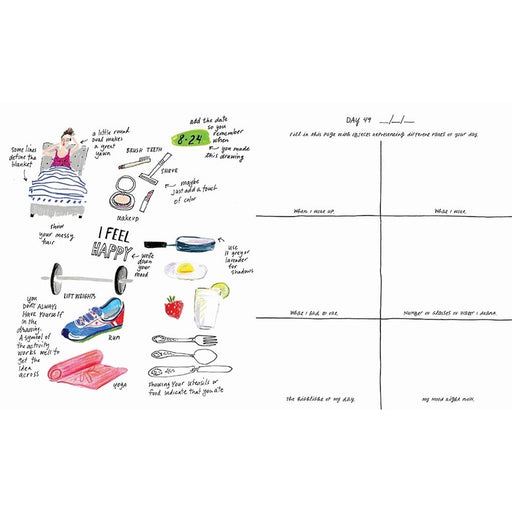 a little round
oval makes a
great
yawn
some lines
define the
blanket
show
your messy
hair
add the date
so you
remember
when
you made
this drawing
8·24
BRUSH TEETH
SHAVE
maybe
just add a touch
of color
makeup
I FEEL
HAPPY
write
down
your
mood
use
grey or
lavender
for
shadows
LIFT WEIGHTS
you
DON'T ALWAYS
Have Yourself
in the
drawing.
A symbol of
the activity
works well to
get the
idea
across
run
yoga
showing your utensils or
food indicate that you ate
DAY 49 __/__/__
Fill in this page with objects representing different parts of your day.
When I woke up.
What I wore.
What I had to eat.
Number of glasses of water I drank.
The backdrop of my day.
My mood right now.